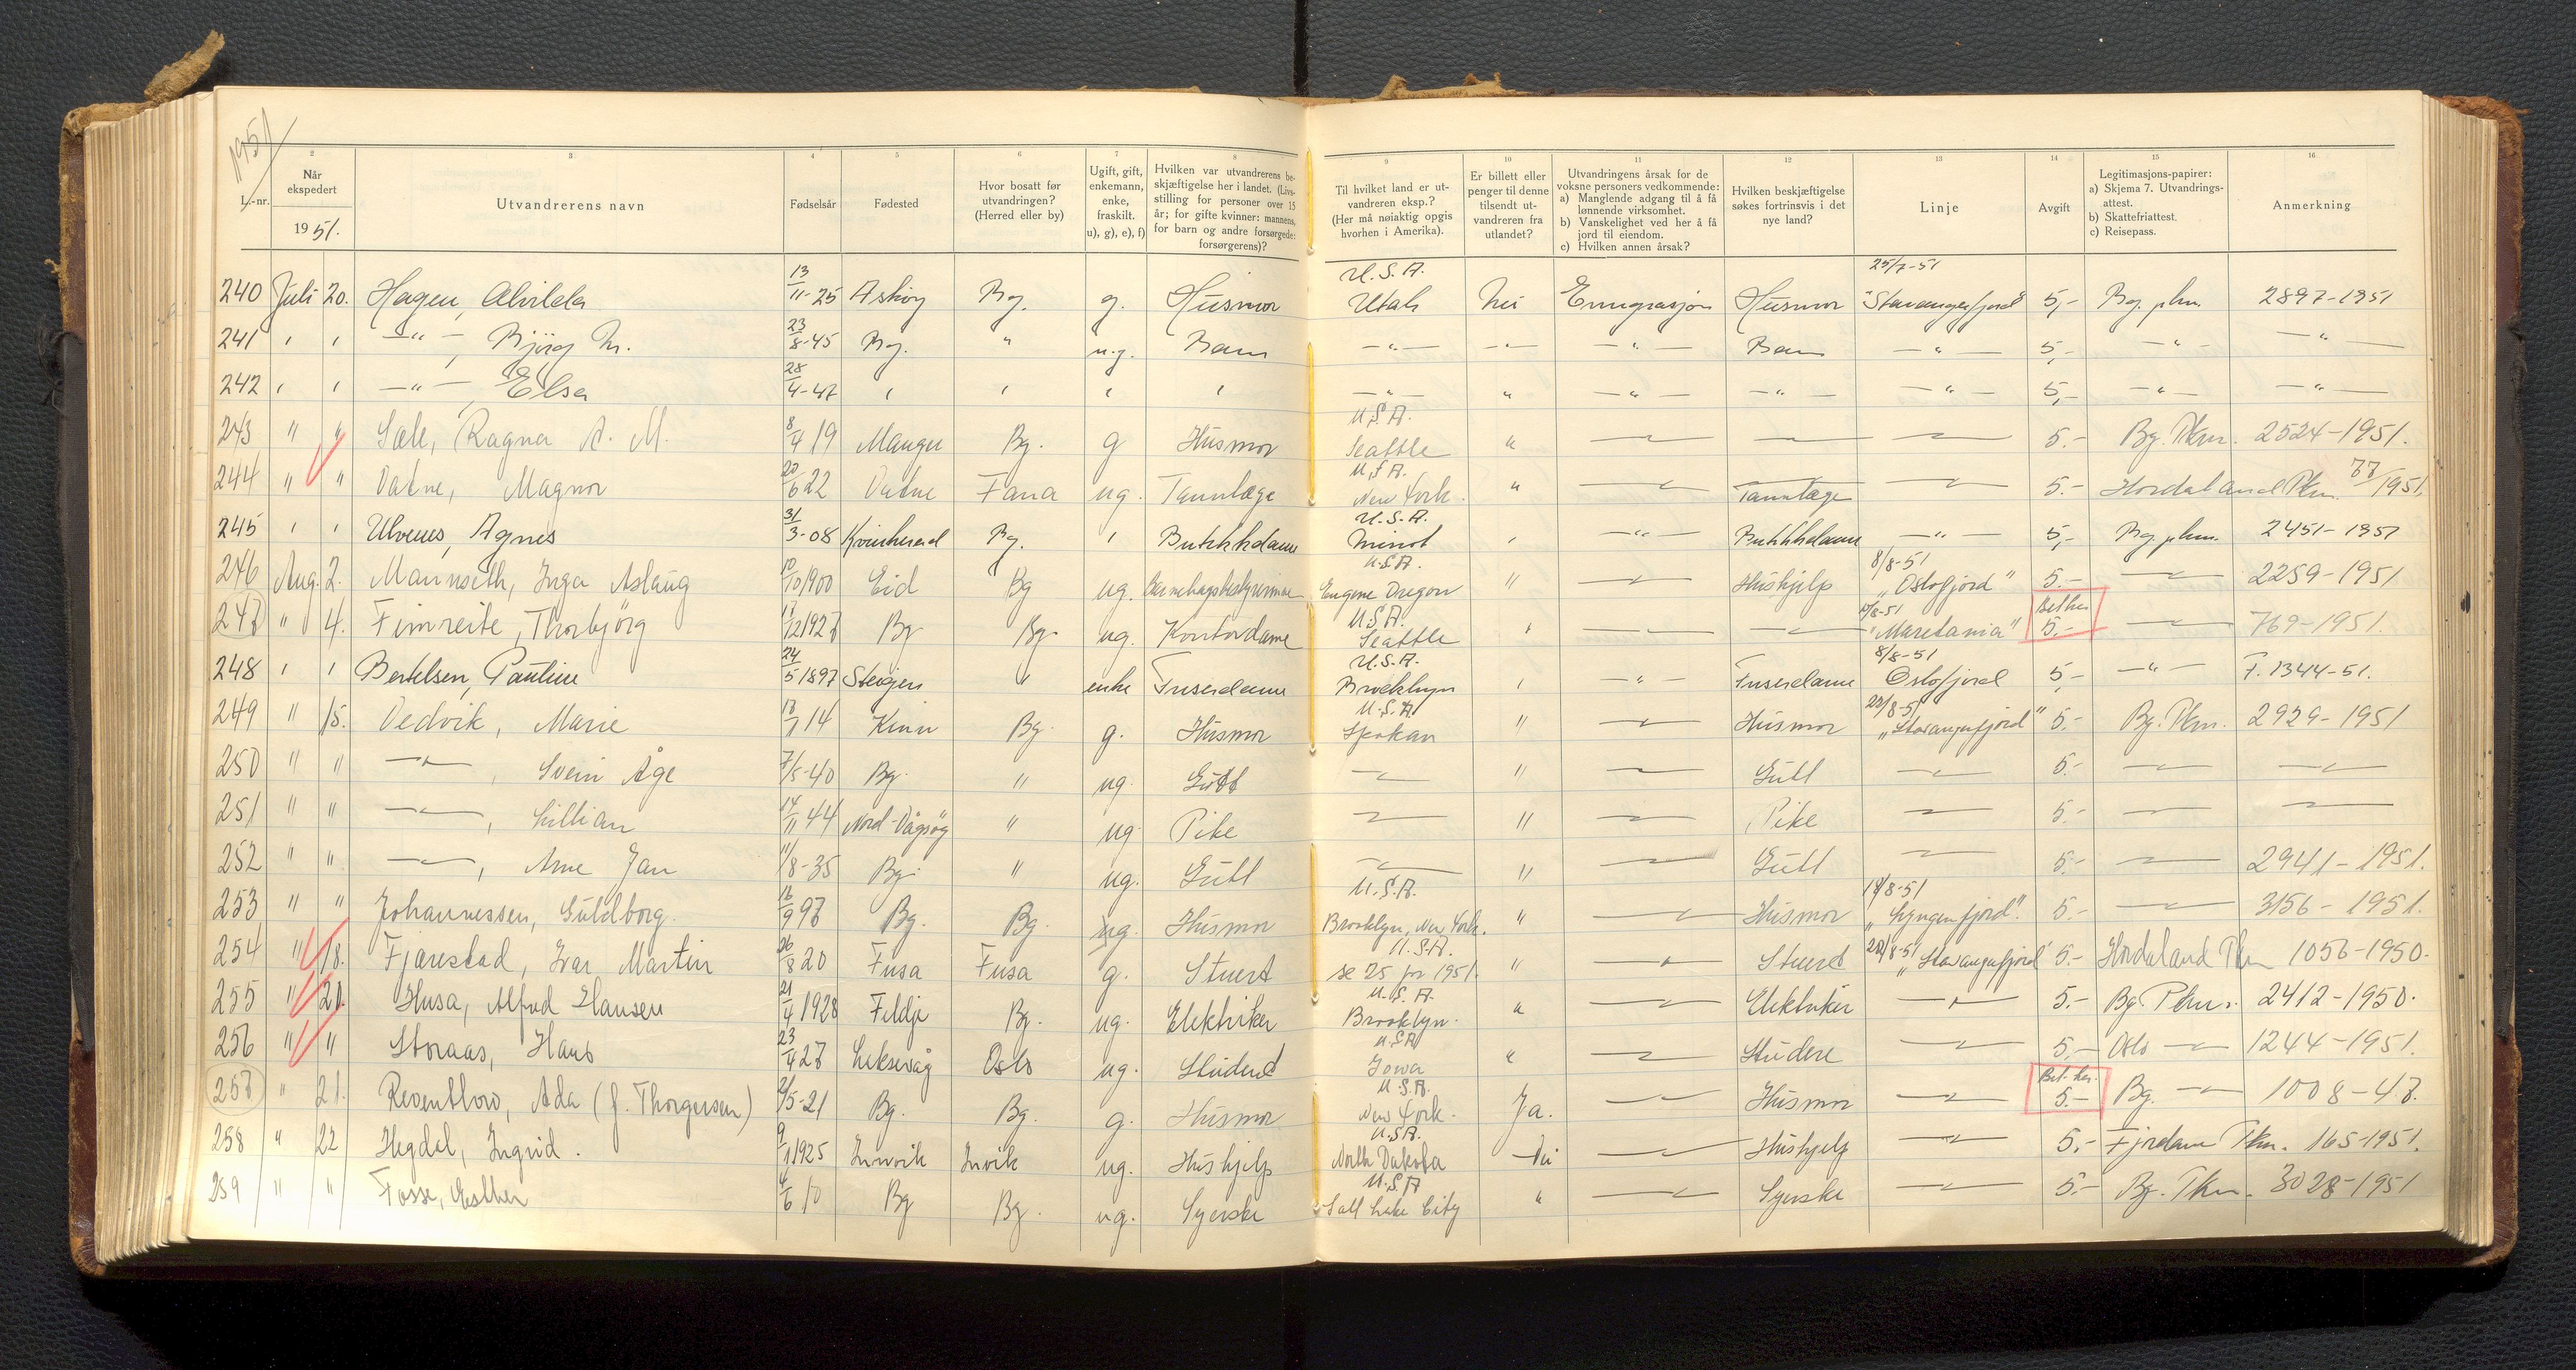 1951
L.-nr.
2 Når ekspedert 1951.
3 Utvandrerens navn
4 Fødselsår
5 Fødested
6 Hvor bosatt før utvandringen? (Herred eller by)
7 Ugift, gift, enkemann, enke, fraskilt. u), g), e), f)
8 Hvilken var utvandrerens beskjæftigelse her i landet. (Livsstilling for personer over 15 år; for gifte kvinner: mannens, for barn og andre forsørgede: forsørgerens)?
9 Til hvilket land er utvandreren eksp.? (Her må nøiaktig opgis hvorhen i Amerika).
10 Er billett eller penger til denne tilsendt utvandreren fra utlandet?
11 Utvandringens årsak for de voksne personers vedkommende: a) Manglende adgang til å få lønnende virksomhet. b) Vanskelighet ved her å få jord til eiendom. c) Hvilken annen årsak?
12 Hvilken beskjæftigelse søkes fortrinsvis i det nye land?
13 Linje
14 Avgift
15 Legitimasjons-papirer: a) Skjema 7. Utvandringsattest. b) Skattefriattest. c) Reisepass.
16 Anmerkning
240 Juli 20. Hagen, Alvilda 13/11-25 Askøy Bg. g. Husmor U.S.A. Utah Nei Emigrasjon Husmor 25/7-51 "Stavangerfjord" 5,- Bg. pkm. 2897-1951
241 " " —"— , Bjørg M. 23/8-45 Bg. " u.g. Barn —"— —"— —"— Barn —"— 5,- —"— —"—
242 " " —"— , Elsa 28/4-47 " " " " —"— " —"— —"— —"— 5,- —"— —"—
243 " " Sæle, Ragna A. M. 8/4 19 Manger Bg. g Husmor U.S.A. Seattle " —"— —"— —"— 5.- Bg. Pkm. 2524-1951.
244 " " Vatne, Magnor 20/6 22 Vatne Fana ug. Tannlæge U.S.A. New York. " —"— Tannlæge —"— 5.- Hordaland Pkm. 77/1951.
245 " " Ulvenes, Agnes 31/3-08 Kvinherad Bg. " Butikkdame U.S.A. Minot " —"— Butikkdame —"— 5,- Bg. pkm. 2451-1951
246 Aug. 2. Mannseth, Inga Aslaug 10/10 1900 Eid Bg ug. Barnehagebestyrerinne U.S.A. Eugene Oregon " —"— Hushjelp 8/8-51 "Oslofjord" 5.- —"— 2259-1951
247 " 4. Fimreite, Thorbjørg 17/12 1927 Bg Bg. ug. Kontordame U.S.A. Seattle " —"— —"— /8-51 "Maretania" Bet. her 5.- —"— 769-1951.
248 " " Bertelsen, Pauline 24/5 1897 Steigen " enke Friserdame U.S.A. Brooklyn " —"— Friserdame 8/8-51 Oslofjord 5,- —"— F. 1344-51.
249 " 15. Vedvik, Marie 18/1 14 Kinn Bg. g. Husmor U.S.A. Spokan " —"— Husmor 22/8-51 "Stavangerfjord" 5.- Bg. Pkm. 2929-1951
250 " " —"— , Svein Åge 7/5-40 Bg. " ug. Gutt —"— " —"— Gutt —"— 5.- —"— —"—
251 " " —"— , Lillian 14/11 44 Nord-Vågsøy " ug Pike —"— " —"— Pike —"— 5.- —"— —"—
252 " " —"— , Arne Jan 11/8-35 Bg. " ug. Gutt —"— " —"— Gutt —"— 5.- —"— 2941-1951.
253 " " Johannessen, Guldborg. 16/9 97 Bg. Bg. g. Husmor U.S.A. Brooklyn, New York. " —"— Husmor 18/8-51 "Lyngenfjord". 5.- —"— 3156-1951.
254 " 18. Fjærestad, Ivar Martin 26/8 20 Fusa Fusa g. Stuert U.S.A. se 25 for 1951 " —"— Stuert 22/8-51 "Stavangerfjord" 5.- Hordaland Pkm 1056-1950.
255 " 20. Husa, Alfred Hansen 21/4 1928 Feldje Bg. ug. Elektriker U.S.A. Brooklyn. " —"— Elektriker —"— 5.- Bg. Pkm. 2412-1950.
256 " " Storaas, Hans 23/4 27 Laksevåg Oslo ug. Student U.S.A. Iowa " —"— Studere —"— 5.- Oslo —"— 1244-1951.
257 " 21. Reventlow, Ada (f. Thorgersen) 2/5-21 Bg. Bg. g. Husmor U.S.A. New York. Ja. —"— Husmor —"— Bet. her. 5.- Bg. —"— 1008-47.
258 " 22 Hegdal, Ingrid. 9/1 1925 Innvik Invik ug. Hushjelp U.S.A. North Dakota Nei —"— Hushjelp —"— 5.- Fjordane Pkm. 165-1951.
259 " " Fosse, Esther 4/6 10 Bg Bg. ug. Syerske U.S.A. Salt Lake City " —"— Syerske —"— 5.- Bg. Pkm. 3028-1951